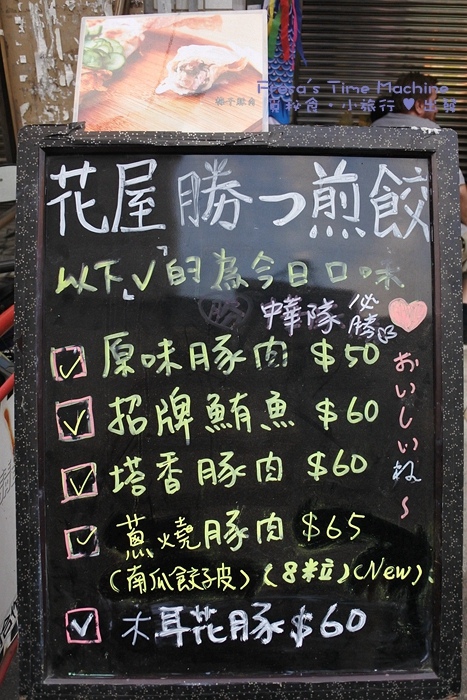 Flora's Time Machine
小旅行♥出發
花屋 勝つ煎餃
以下「✓」的為今日口味
中華隊 必勝
原味豚肉 $50
招牌鮪魚 $60
塔香豚肉 $60
蔥燒豚肉 $65
(南瓜餃子皮)(8粒)(New)
木耳花豚 $60
おいしいね~